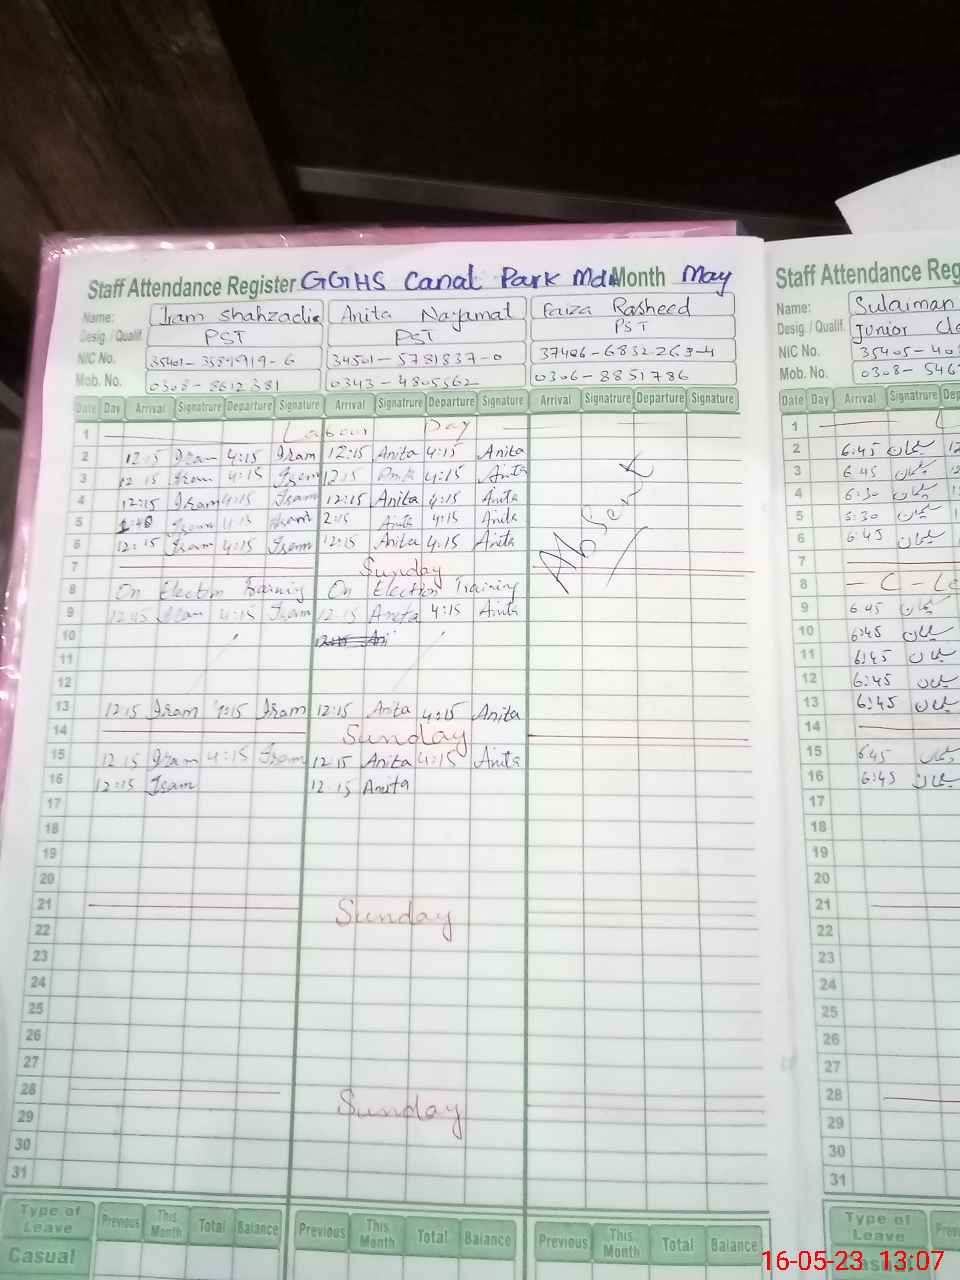 Staff Attendance Register GGHS Canal Park Month May
Name: Iram Shahzadi Anita Nayamat Faiza Rasheed
Desig. / Qualif. PST PST PST
NIC No. 34501-5781837-0
Mob. No. 0308-8612381 0343-4805562 0306-8851786
Date Day Arrival Signatrure Departure Signature Arrival Signatrure Departure Signature Arrival Signatrure Departure Signature
1 Labour Day
2 12:15 Iram 4:15 Iram 12:15 Anita 4:15 Anita
3 12:15 Iram 4:15 Iram 12:15 Anita 4:15 Anita
4 12:15 Iram 4:15 Iram 12:15 Anita 4:15 Anita
5 Iram 4:15 Iram 2:15 Anita 4:15 Anita
6 12:15 Iram 4:15 Iram 12:15 Anita 4:15 Anita
Absent
7 Sunday
8 On Election Training On Election Training
9 12:45 Iram 4:15 Iram 12:15 Anita 4:15 Anita
10
11
12
13 12:15 Iram 4:15 Iram 12:15 Anita 4:15 Anita
14 Sunday
15 12:15 Iram 4:15 Iram 12:15 Anita 4:15 Anita
16 12:15 Iram 12:15 Anita
17
18
19
20
21 Sunday
22
23
24
25
26
27
28 Sunday
29
30
31
Type of Leave Previous This Month Total Balance Previous This Month Total Balance Previous This Month Total Balance
Casual
Staff Attendance Reg
Name: Sulaiman
Desig. / Qualif. Junior
NIC No. 35405-40
Mob. No. 0308-546
Date Day Arrival Signatrure Dep
1
2 6:45 سلیمان
3 6:45 سلیمان
4 6:30 سلیمان
5 6:30 سلیمان
6 6:45 سلیمان
7
8
9 6:45 سلیمان
10 6:45 سلیمان
11 6:45 سلیمان
12 6:45 سلیمان
13 6:45 سلیمان
14
15 6:45 سلیمان
16 6:45 سلیمان
17
18
19
20
21
22
23
24
25
26
27
28
29
30
31
Type of Leave
16-05-23 13:07